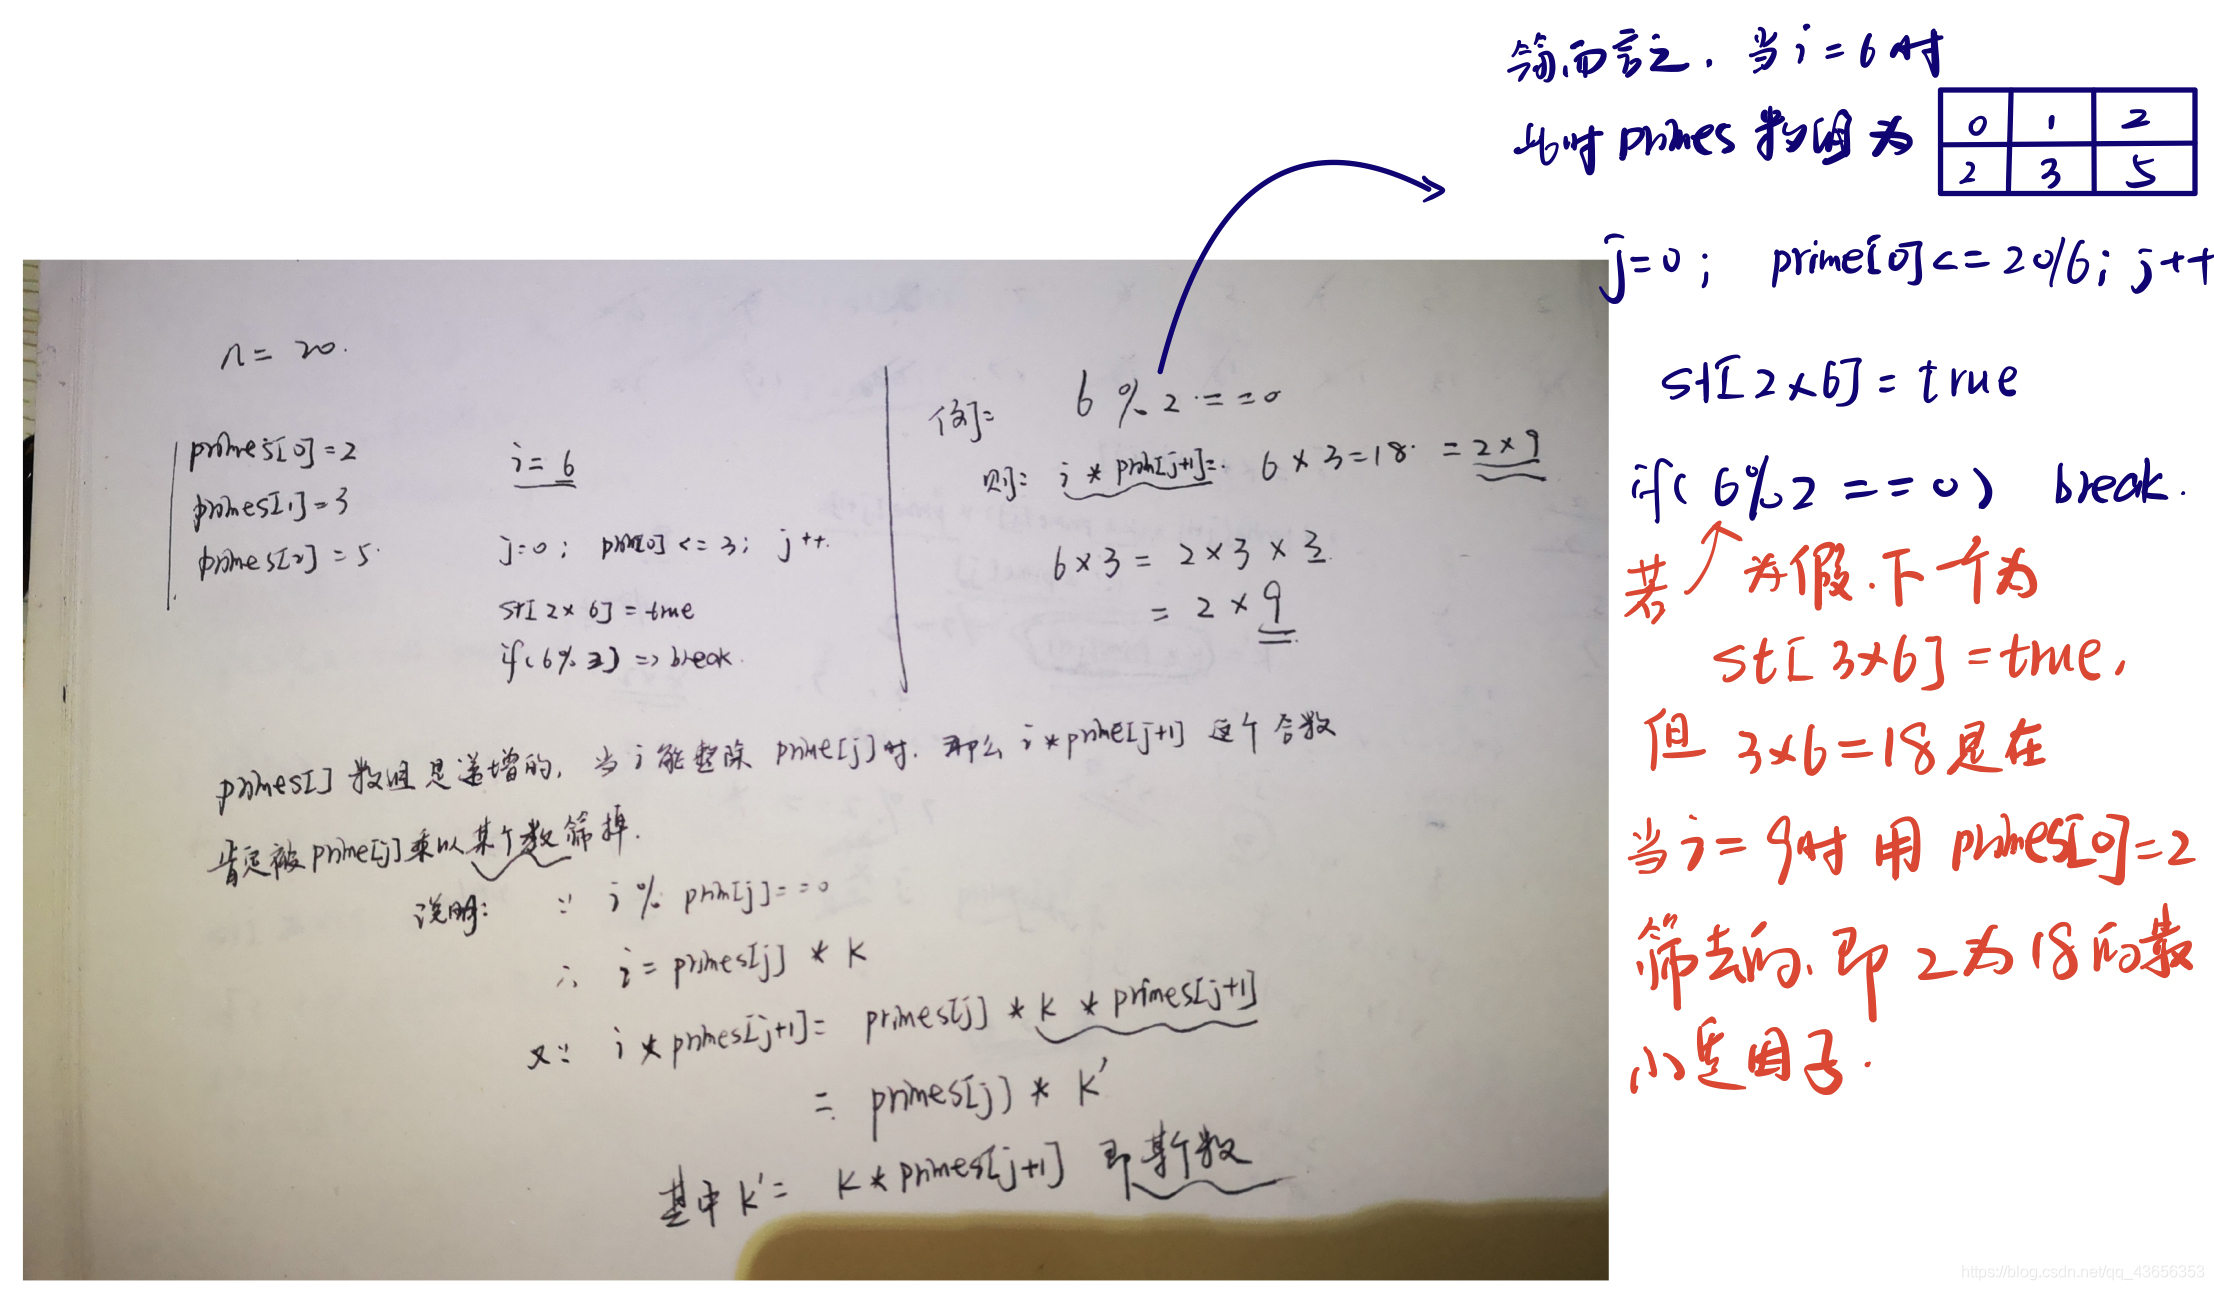 简而言之. 当i=6时
此时primes数组为
0 1 2
2 3 5
j=0; prime[0]<=20/6; j++
st[2×6]=true
if(6%2==0) break.
若为假.下个为
st[3×6]=true,
但 3×6=18是在
当i=9时用primes[0]=2
筛去的,即2为18的最
小质因子.
n=20.
primes[0]=2
primes[1]=3
primes[2]=5.
i=6
j=0; prim[0]<=3; j++.
st[2×6]=true
if(6%2)=>break.
例: 6%2==0
则: i*prim[j+1]= 6×3=18. =2×9
6×3=2×3×3.
=2×9
primes[]数组是递增的, 当i能整除prime[j]时. 那么i*prime[j+1]这个合数
肯定被prime[j]乘以某个数筛掉.
说明: ∵ i%prim[j]==0
∴ i=primes[j]*k
又∵ i*primes[j+1]= primes[j]*k*primes[j+1]
= primes[j]*k'
其中k'= k*primes[j+1] 即某个数
https://blog.csdn.net/qq_43656353